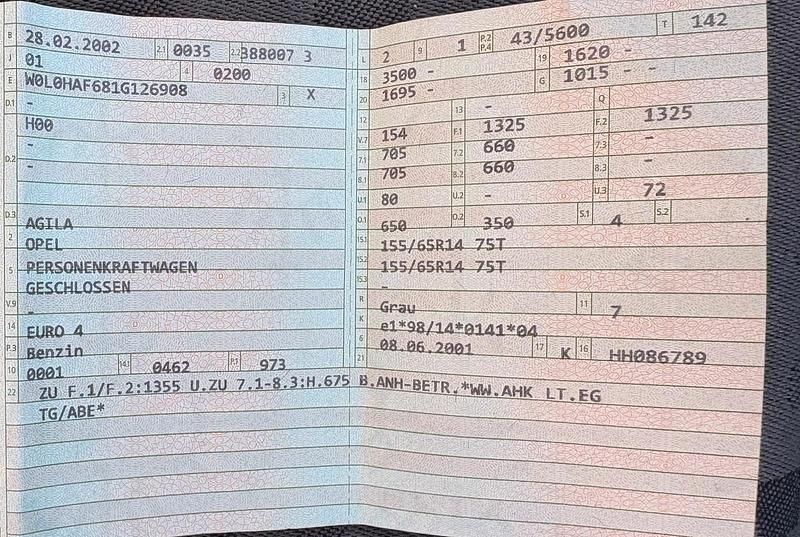 B 28.02.2002 2.1 0035 2.2 388007 3
J 01 4 0200
E W0L0HAF681G126908 3 X
D.1 -
H00
D.2 -
-
D.3 AGILA
2 OPEL
5 PERSONENKRAFTWAGEN
GESCHLOSSEN
V.9 -
14 EURO 4
P.3 Benzin
10 0001 14.1 0462 P.1 973
L 2 9 1 P.2 P.4 43/5600 T 142
18 3500 - 19 1620 -
20 1695 - G 1015 - -
12 13 - Q
V.7 154 F.1 1325 F.2 1325
7.1 705 7.2 660 7.3 -
8.1 705 8.2 660 8.3 -
U.1 80 U.2 - U.3 72
O.1 650 O.2 350 S.1 4 S.2
15.1 155/65R14 75T
15.2 155/65R14 75T
15.3 -
R Grau 11 7
K e1*98/14*0141*04
6 08.06.2001 17 K 16 HH086789
21
22 ZU F.1/F.2:1355 U.ZU 7.1-8.3:H.675 B.ANH-BETR.*WW.AHK LT.EG
TG/ABE*